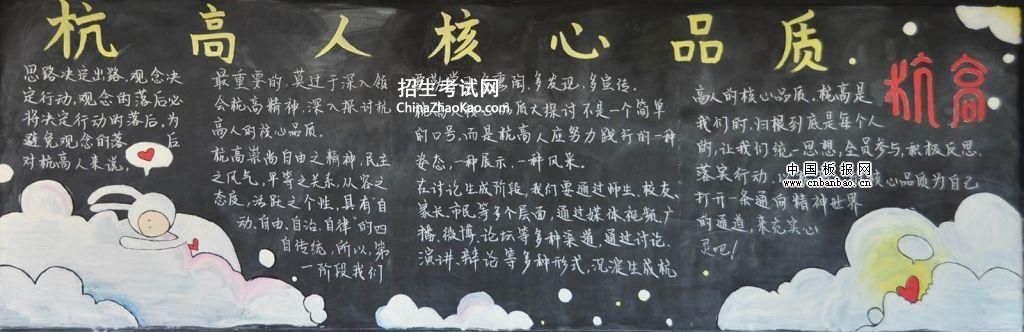 杭高人核心品质.
思路决定出路，观念决
定行动，观念的落后必
将决定行动的落后，为
避免观念的落 后
对杭高人来说，
最重要的，莫过于深入领
会杭高精神，深入探讨杭
高人的核心品质。
杭高崇尚自由之精神，民主
之风气，平等之关系，从容之
态度，活跃之个性，具有自
动、自由、自治、自律"的四
自传统，所以，第
一阶段我们
多发现，多宣传。
质大探讨不是一个简单
的口号，而是杭高人应努力践行的一种
姿态，一种展示，一种风采。
在讨论生成阶段，我们要通过师生、校友、
家长、市民等多个层面，通过媒体视频、广
播、微博、论坛等多种渠道，通过讨论、
演讲、辩论等多种形式，沉淀生成杭
高人的核心品质，杭高是
我们的，归根到底是每个人
的，让我们统一思想，全员参与，积极反思，
落实行动，
核心品质为自己
打开一条通向精神世界
的通道，来充实心
灵吧！
杭高
招生考试网
ChinaZhaoKao.com
中国板报网
www.cnbanbao.cn